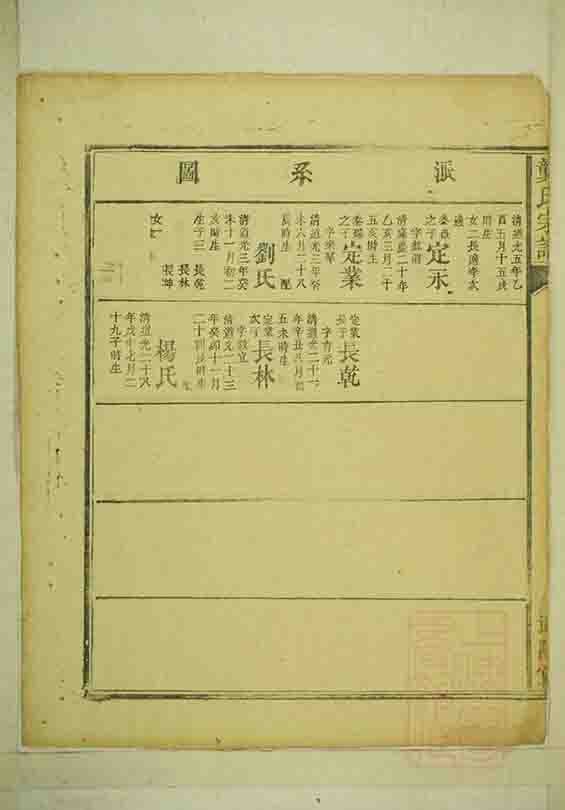 龔氏宗譜
派系圖
清道光五年乙
酉五月十五戌
時生
女二長適李次
適
之子
定永
字
清嘉慶二十年
乙亥三月二十
五亥時生
之子
定業
字榮琴
清道光三年癸
未六月二十八
辰時生 配
劉氏
清道光三年癸
未十一月初二
亥時生
生子三 長乾
長林
長坤
女
定業
長子
長乾
字育元
清道光二十一
年辛丑八月初
五未時生
定業
次子
長林
字教宣
清道光二十三
年癸卯十一月
二十 辰時生
楊氏
清道光二十八
年戊申七月二
十九子時生